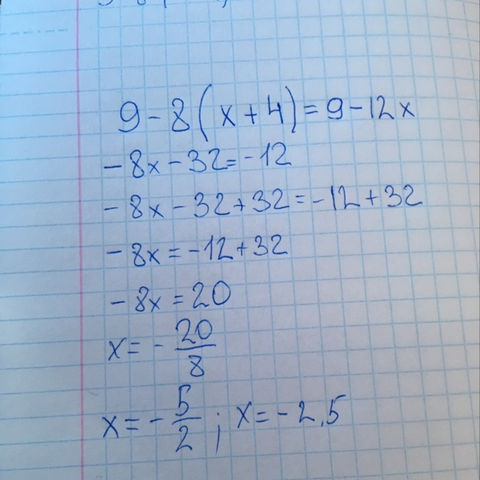 9 - 8(x + 4) = 9 - 12x
- 8x - 32 = - 12
- 8x - 32 + 32 = - 12 + 32
- 8x = - 12 + 32
- 8x = 20
x = - 20/8
x = - 5/2 ; x = - 2,5